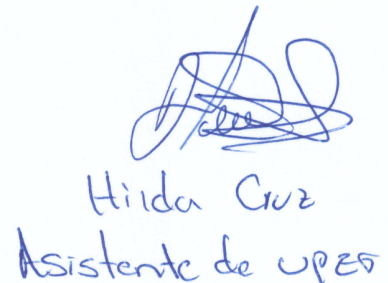 Hilda Cruz
Asistente de